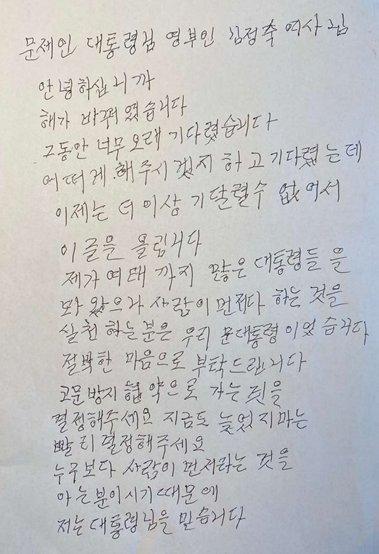 문제인 대통령님 영부인 김정숙 여사님
안녕하십니까
해가 바뀌였습니다
그동안 너무 오래 기다렸습니다
어떠게 해주시겠지 하고 기다렸는데
이제는 더 이상 기달릴수 없어서
이 글을 올립니다
제가 여태 까지 많은 대통령들을
보와왔으나 사람이 먼저다 하는 것을
실천 하는분은 우리 문대통령이었습니다
절박한 마음으로 부탁드립니다
고문방지 협약으로 가는 것을
결정해주세요 지금도 늦었지마는
빨리 결정해주세요
누구보다 사람이 먼저라는 것을
아는분이시기 때문에
저는 대통령님을 믿습니다